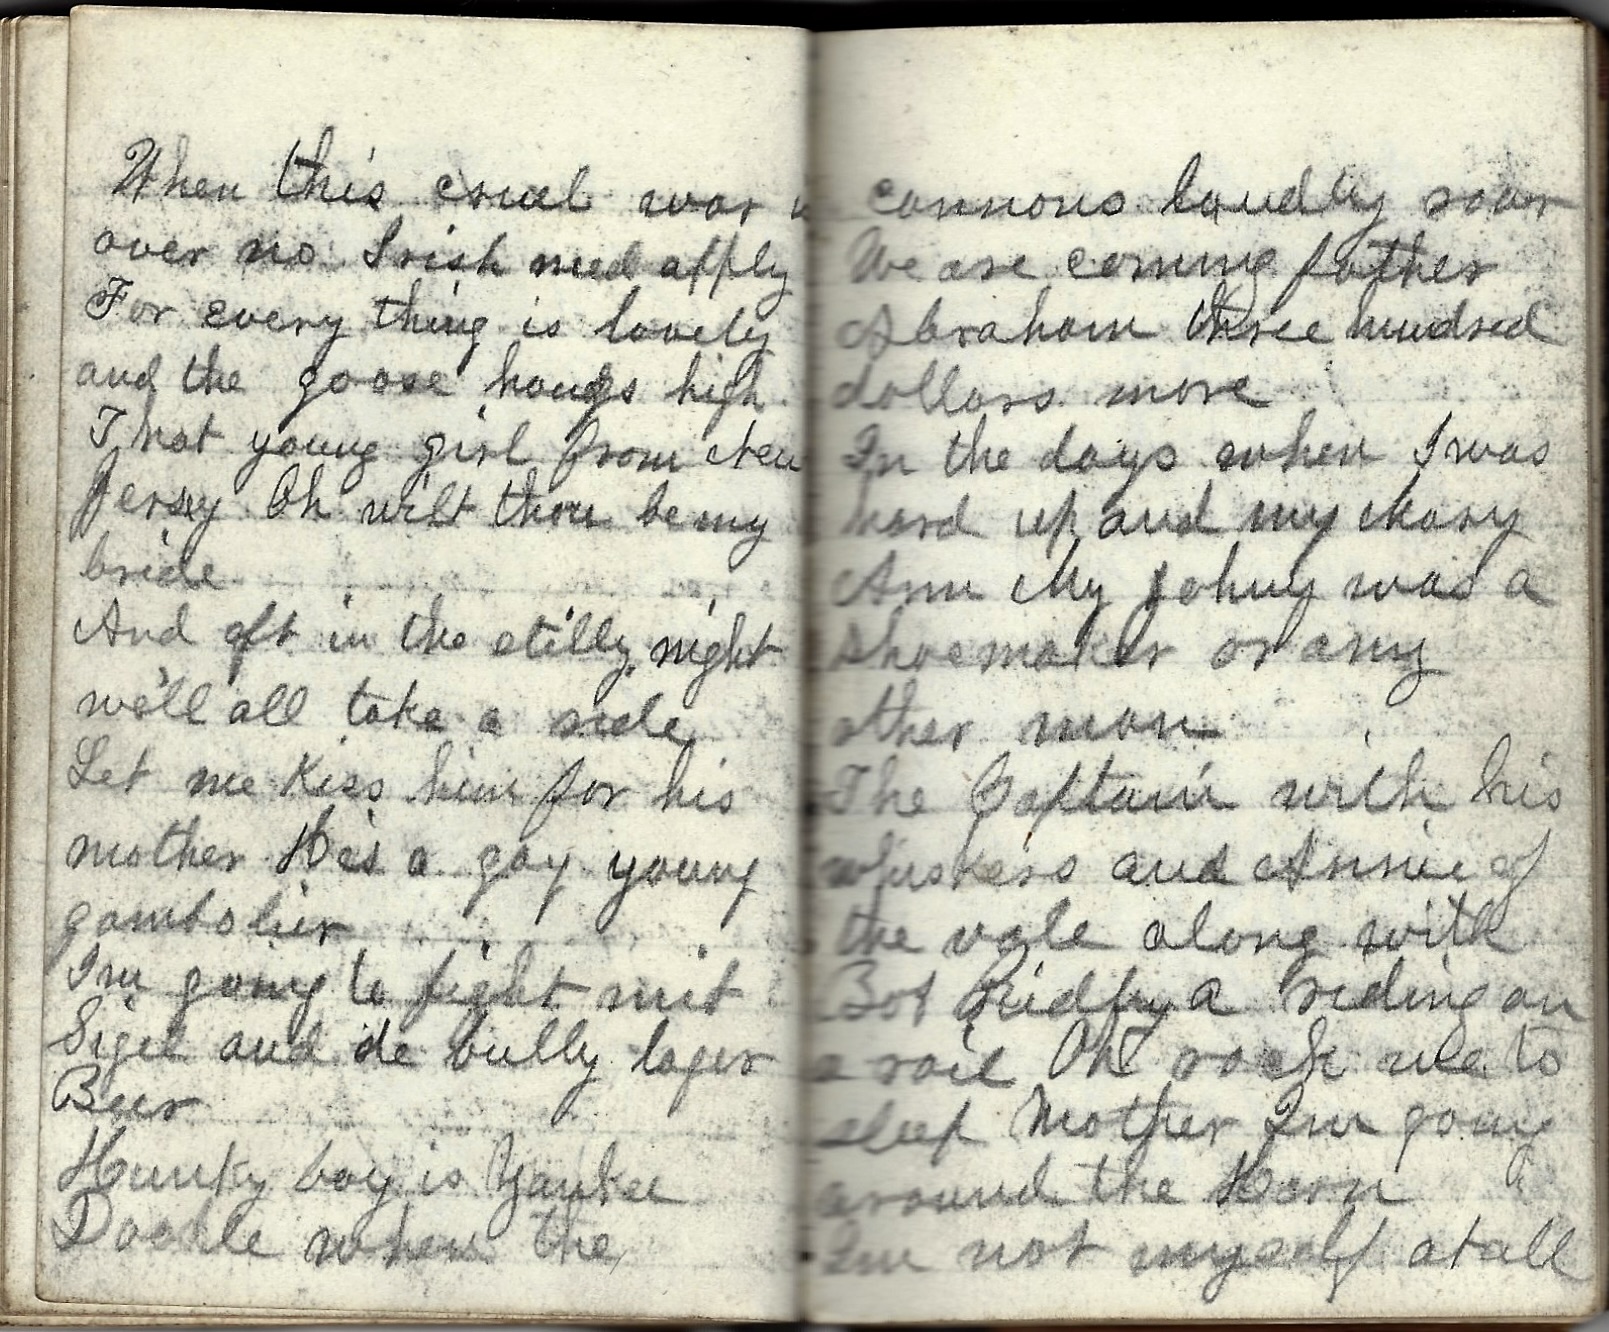 When this cruel war is
over no Irish need apply
For every thing is lovely
and the goose hangs high
That young girl from New
Jersey Oh wilt thou be my
bride
And oft in the stilly night
we'll all take a ride
Let me kiss him for his
mother He's a gay young
gambolier
I'm going to fight mit
Sigel and de bully lager
Beer
Hunky boy is Yankee
Doodle when the
cannons loudly roar
We are coming father
Abraham three hundred
dollars more
In the days when I was
hard up and my Mary
Ann My Johny was a
shoemaker or any
other man
The Captain with his
whiskers and Annie of
the vale along with
Bob Ridley a riding on
a rail Oh rock me to
sleep Mother I'm going
around the Horn
I'm not myself atall